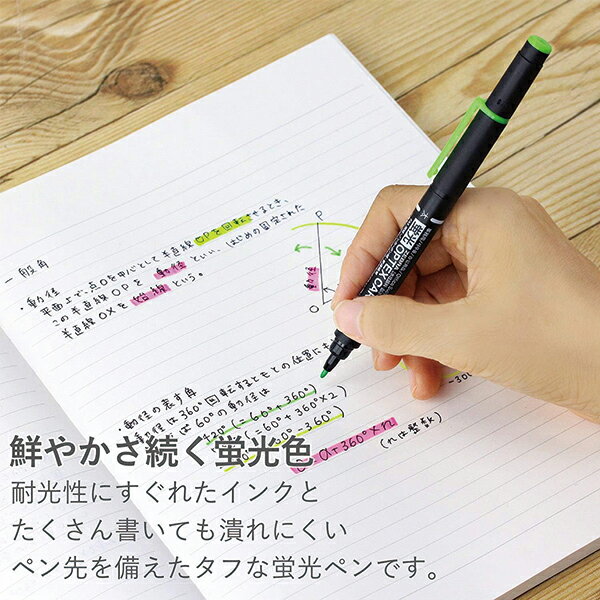 一般角
・動径
平面上で、点Oを中心として半直線OPを回転させるとき、
この半直線OPを動径といい、はじめの固定された
半直線OXを始線という。
P
動径
O
・動径の表す角
動径は360°回転するともとの位置にも
60°の動径は
420°(=60°+360°)
(=60°+360°×2)
60°-360°)
α+360°×n
(nは整数)
-300
蛍光
OPTEX CARE
太
鮮やかさ続く蛍光色
耐光性にすぐれたインクと
たくさん書いても潰れにくい
ペン先を備えたタフな蛍光ペンです。